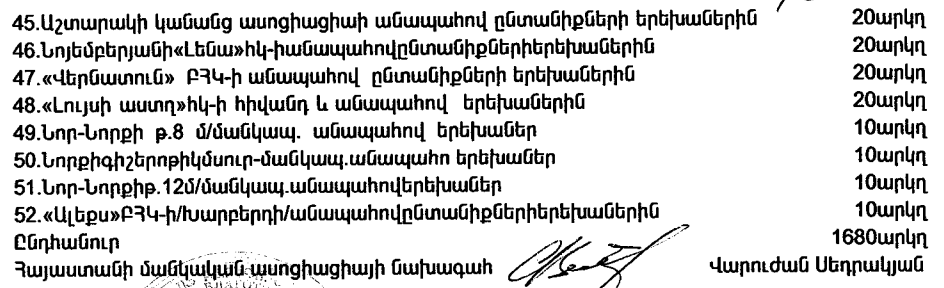 45.Աշտարակի կանանց ասոցիացիաի անապահով ընտանիքների երեխաներին 20արկղ
46.Նոյեմբերյանի«Լենա»հկ-իանապահովընտանիքներիերեխաներին 20արկղ
47.«Վերնատուն» ԲՀԿ-ի անապահով ընտանիքների երեխաներին 20արկղ
48.«Լույսի աստղ»հկ-ի հիվանդ և անապահով երեխաներին 20արկղ
49.Նոր-Նորքի թ.8 մ/մանկապ. անապահով երեխաներ 10արկղ
50.Նորքիգիշերոթիկմսուր-մանկապ.անապահո երեխաներ 10արկղ
51.Նոր-Նորքիթ.12մ/մանկապ.անապահովերեխաներ 10արկղ
52.«Ալեքս»ԲՀԿ-ի/Խարբերդի/անապահովընտանիքներիերեխաներին 10արկղ
Ընդհանուր 1680արկղ
Հայաստանի մանկական ասոցիացիայի նախագահ Վարուժան Սեդրակյան